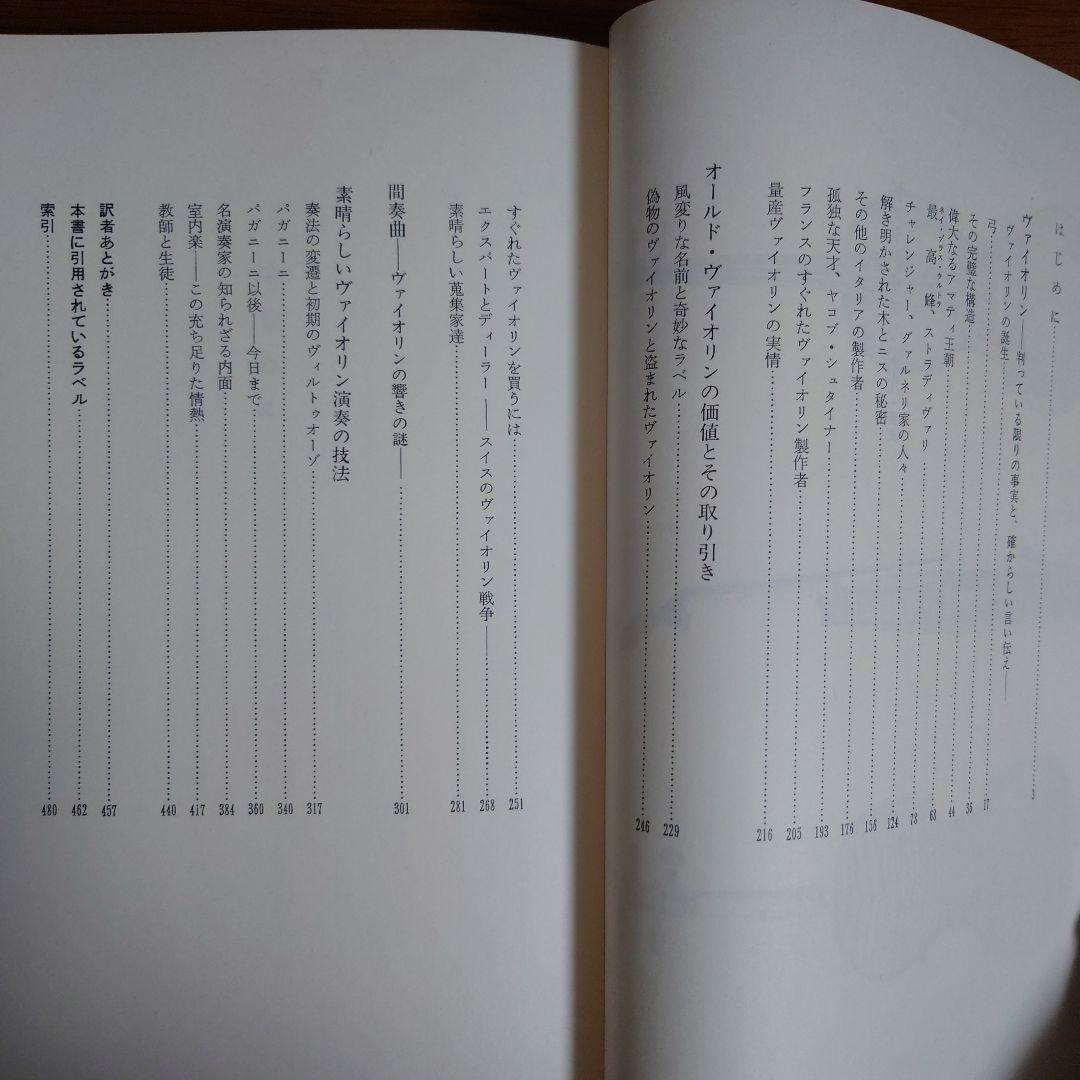 はじめに……3
ヴァイオリン――判っている限りの事実と、確からしい言い伝え――
ヴァイオリンの誕生……17
弓……36
その完璧な構造……44
偉大なるアマティ王朝……68
ネ・プラス・ウルトラ
最高峰、ストラディヴァリ……78
チャレンジャー、グァルネリ家の人々……124
解き明かされた木とニスの秘密……156
その他のイタリアの製作者……176
孤独な天才、ヤコブ・シュタイナー……193
フランスのすぐれたヴァイオリン製作者……205
量産ヴァイオリンの実情……216
オールド・ヴァイオリンの価値とその取り引き
風変りな名前と奇妙なラベル……229
偽物のヴァイオリンと盗まれたヴァイオリン……246
すぐれたヴァイオリンを買うには……251
エクスパートとディーラー――スイスのヴァイオリン戦争――……268
素晴らしい蒐集家達……281
間奏曲――ヴァイオリンの響きの謎――……301
素晴らしいヴァイオリン演奏の技法
奏法の変遷と初期のヴィルトゥオーゾ……317
パガニーニ……340
パガニーニ以後――今日まで……360
名演奏家の知られざる内面……384
室内楽――この充ち足りた情熱……417
教師と生徒……440
訳者あとがき……457
本書に引用されているラベル……462
索引……480